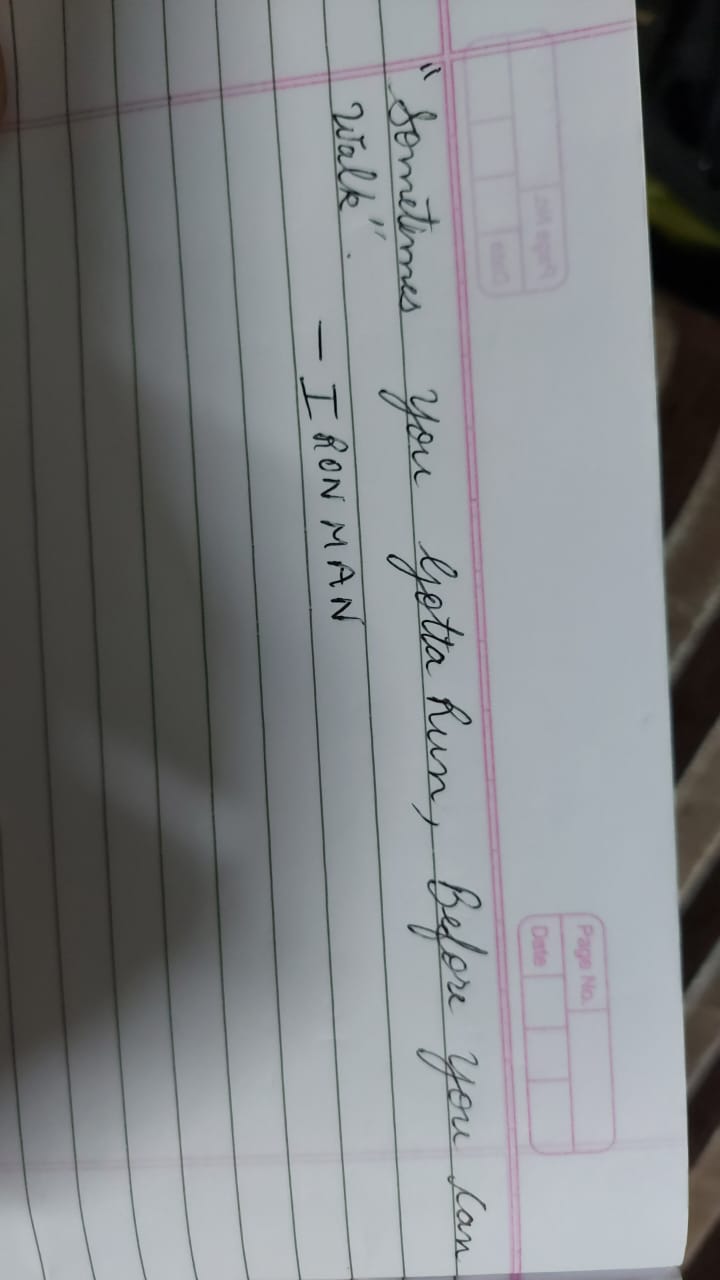 Page No.
Date
"Sometimes you Gotta Run, Before you can
Walk".
— IRON MAN